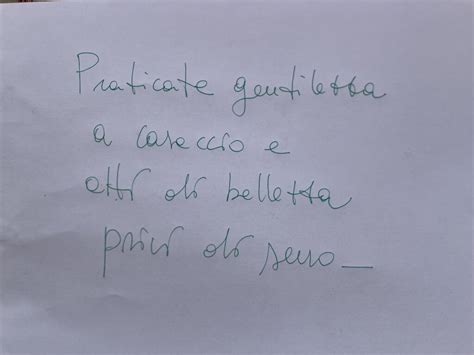 Praticate gentilezza
a casaccio e
atti di bellezza
privi di senso_